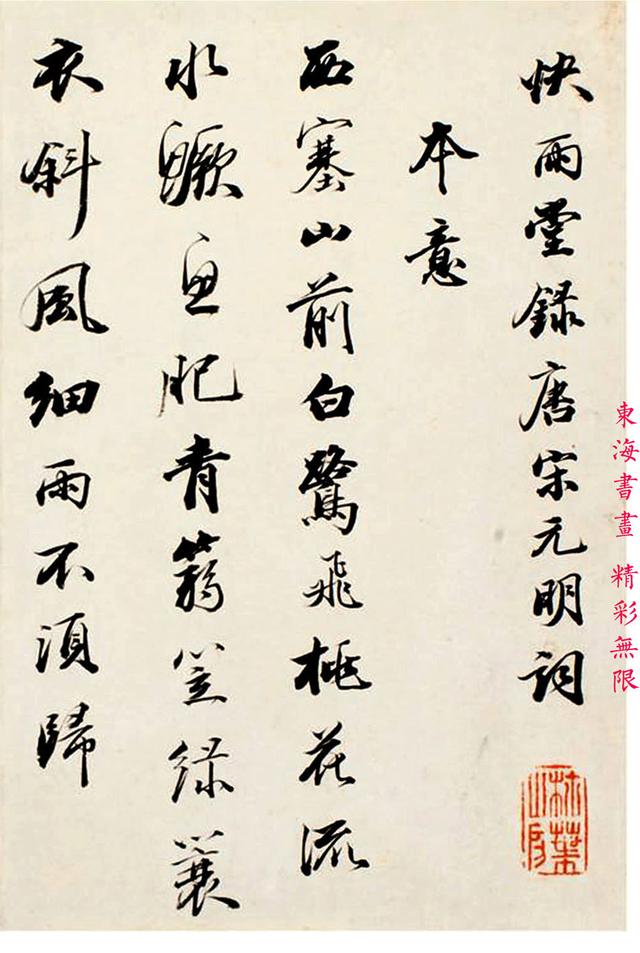 快雨堂錄唐宋元明詞
本意
西塞山前白鷺飛桃花流
水鱖魚肥青篛笠綠蓑
衣斜風細雨不須歸
柿葉山房
東海書畫 精彩無限